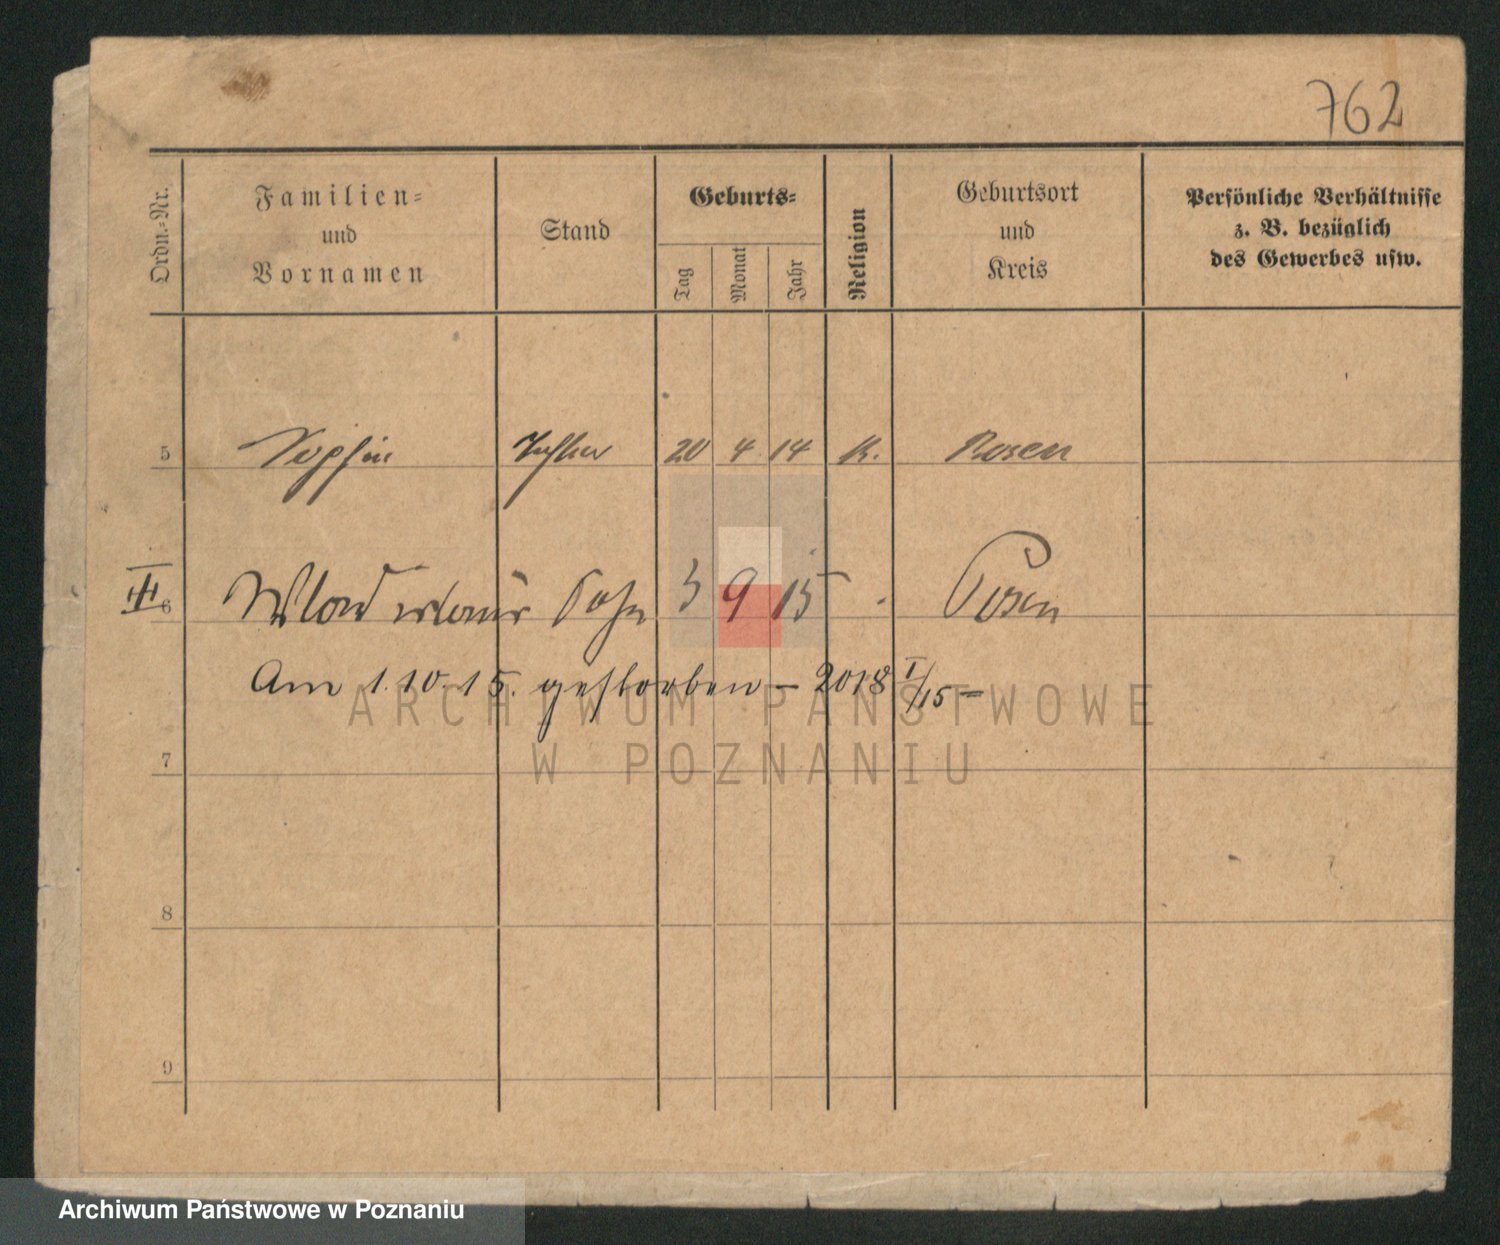 762
Ordn.-Nr.
Familien-
und
Vornamen
Stand
Geburts-
Tag
Monat
Jahr
Religion
Geburtsort
und
Kreis
Persönliche Verhältnisse
z. B. bezüglich
des Gewerbes usw.
5 Sophie Tochter 20 4 14 K. Posen
III 6 Wladislaus Sohn 3 9 15 Posen
Am 1.10.15. gestorben – 2018 I/15 –
7
8
9
ARCHIWUM PAŃSTWOWE
W POZNANIU
Archiwum Państwowe w Poznaniu